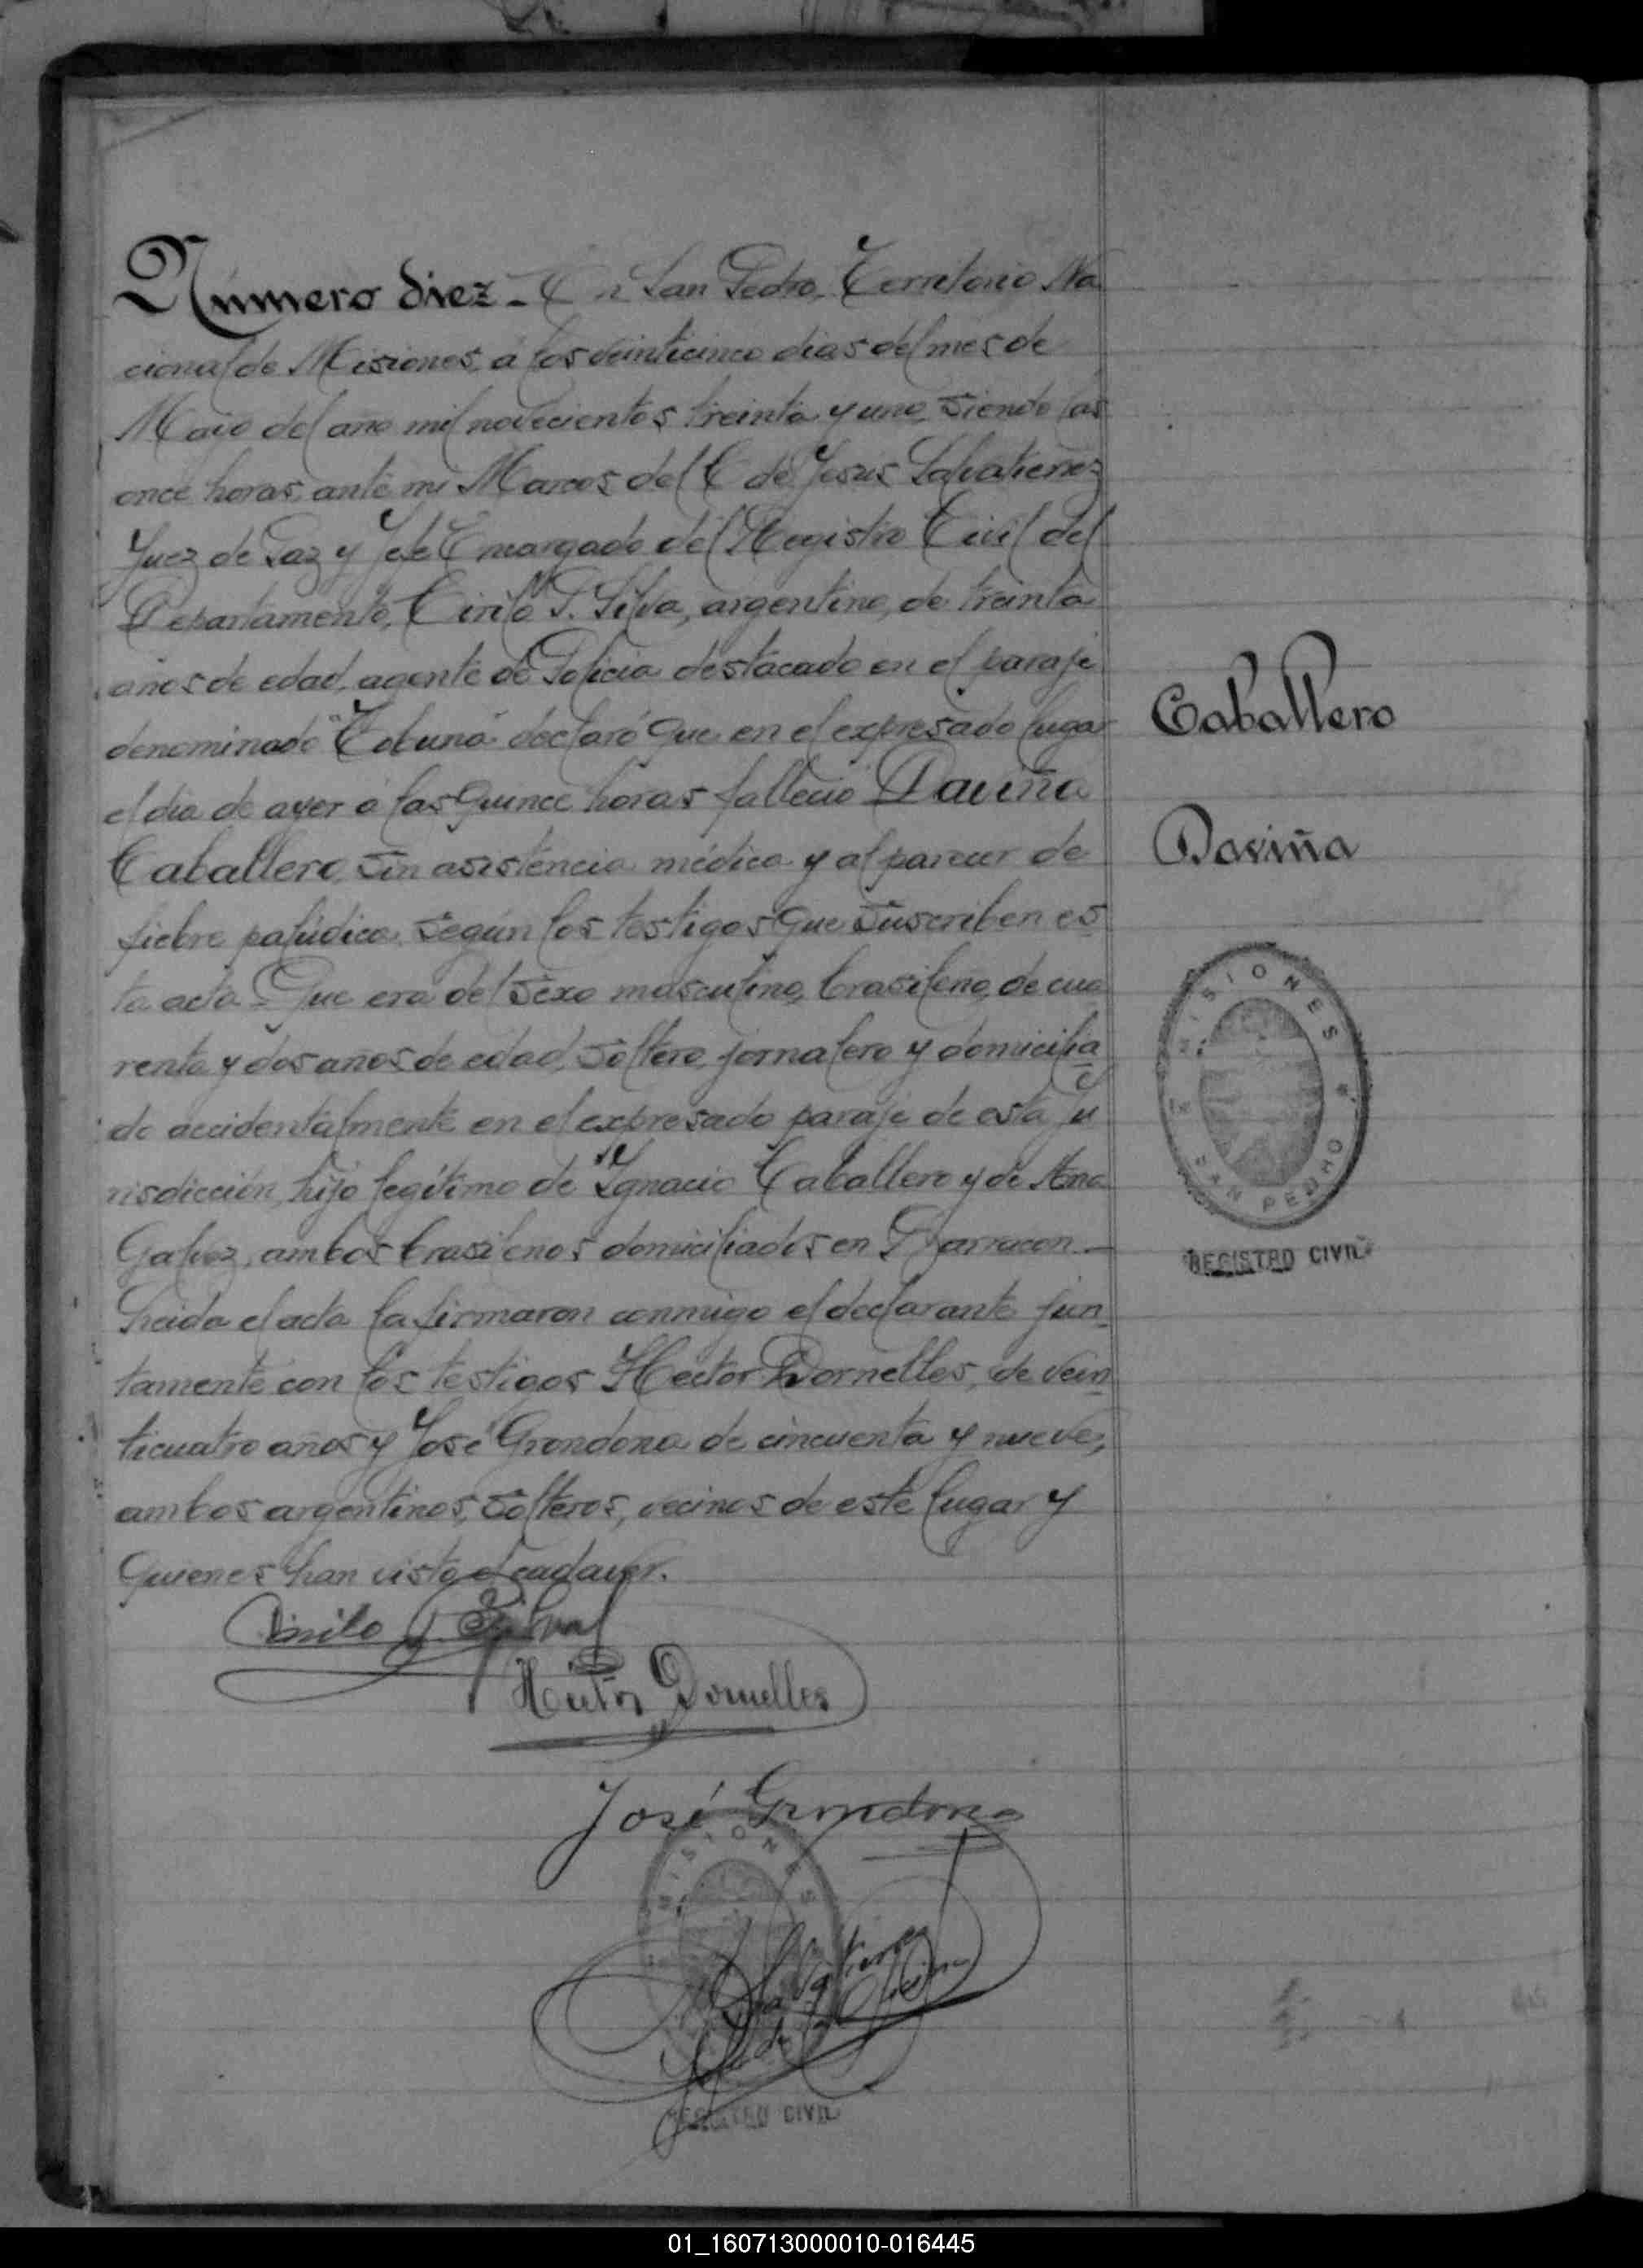 Número diez - En San Pedro, Territorio Na
cional de Misiones, á los veinticinco dias del mes de
Mayo del año mil novecientos treinta y uno, siendo las
once horas, ante mi Marcos del C de Jesus Salvatierrez
Juez de Paz y Jefe Encargado del Registro Civil del
Departamento, Cirilo S. Silva, argentino, de treinta
años de edad, agente de Policia destacado en el paraje
denominado "Tobuná declaró Que en el expresado lugar
el dia de ayer á las Quince horas falleció Daviña
Caballero, sin asistencia médica y al parecer de
fiebre palúdica, según los testigos Que suscriben es
ta acta - Que era del sexo masculino, brasileño, de cua
renta y dos años de edad, soltero, jornalero y domicilia
do accidentalmente en el expresado paraje de esta Ju
risdicción, hijo legítimo de Ignacio Caballero y de Ana
Galvez, ambos brasilenos domiciliados en Barracon -
Leida el acta la firmaron conmigo el declarante jun
tamente con los testigos Hector Dornelles, de vein
ticuatro años y José Grondona de cincuenta y nueve,
ambos argentinos, solteros, vecinos de este lugar y
Quienes han visto el cadaver.
Cirilo S. Silva
Hector Dornelles
José Grondona
MISIONES
REGISTRO CIVIL
Caballero
Daviña
MISIONES
SAN PEDRO
REGISTRO CIVIL
01_160713000010-016445